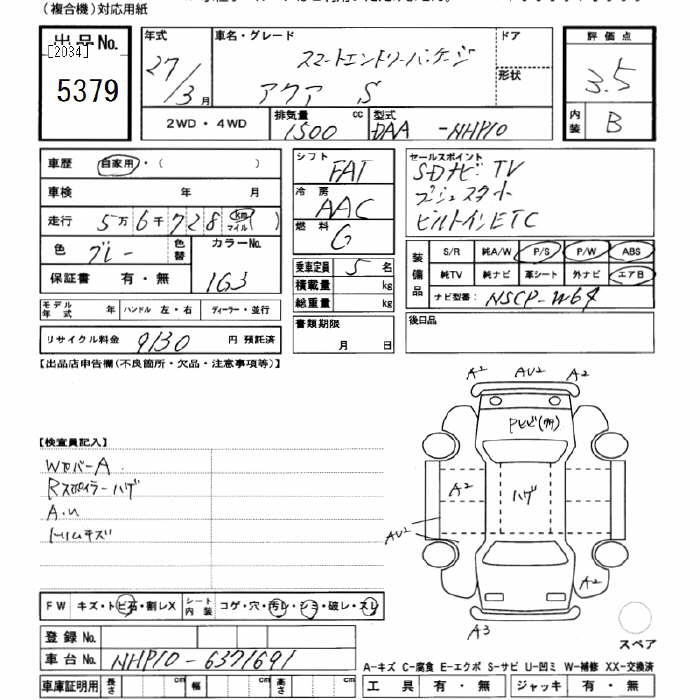 (複合機)対応用紙
出品No.
[2034]
5379
年式
27/3月
車名・グレード
スマートエントリーパッケージ
アクア S
ドア
形状
2WD・4WD
排気量 1500 cc
型式 DAA -NHP10
評価点
3.5
内装 B
車歴 自家用・( )
車検 年 月
走行 5万6千728 km マイル ( )
色 グレー 色替 カラーNo. 1G3
保証書 有・無
モデル年式 年 ハンドル 左・右 ディーラー・並行
リサイクル料金 9130 円 預託済
シフト FAT
冷房 AAC
燃料 G
乗車定員 5 名
積載量 kg
総重量 kg
書類期限
月 日
セールスポイント
SDナビ TV
プッシュスタート
ビルトインETC
装備品
S/R 純A/W P/S P/W ABS
純TV 純ナビ 革シート 外ナビ エアB
ナビ型番: NSCP-W64
後日品
【出品店申告欄(不良箇所・欠品・注意事項等)】
【検査員記入】
WカバーA
Rスポイラーハゲ
A.U
トリムキズ
A2 AU2 A2
Pヒビ(割)
A2
ハゲ
AU2
A2
A3
スペア
FW キズ・トビ石・割レX
シート内装 コゲ・穴・汚レ・シミ・破レ・スレ
登録No.
車台No. NHP10-6371691
車庫証明用 長さ cm 幅 cm 高さ cm
A-キズ C-腐食 E-エクボ S-サビ U-凹ミ W-補修 XX-交換済
工具 有・無 ジャッキ 有・無